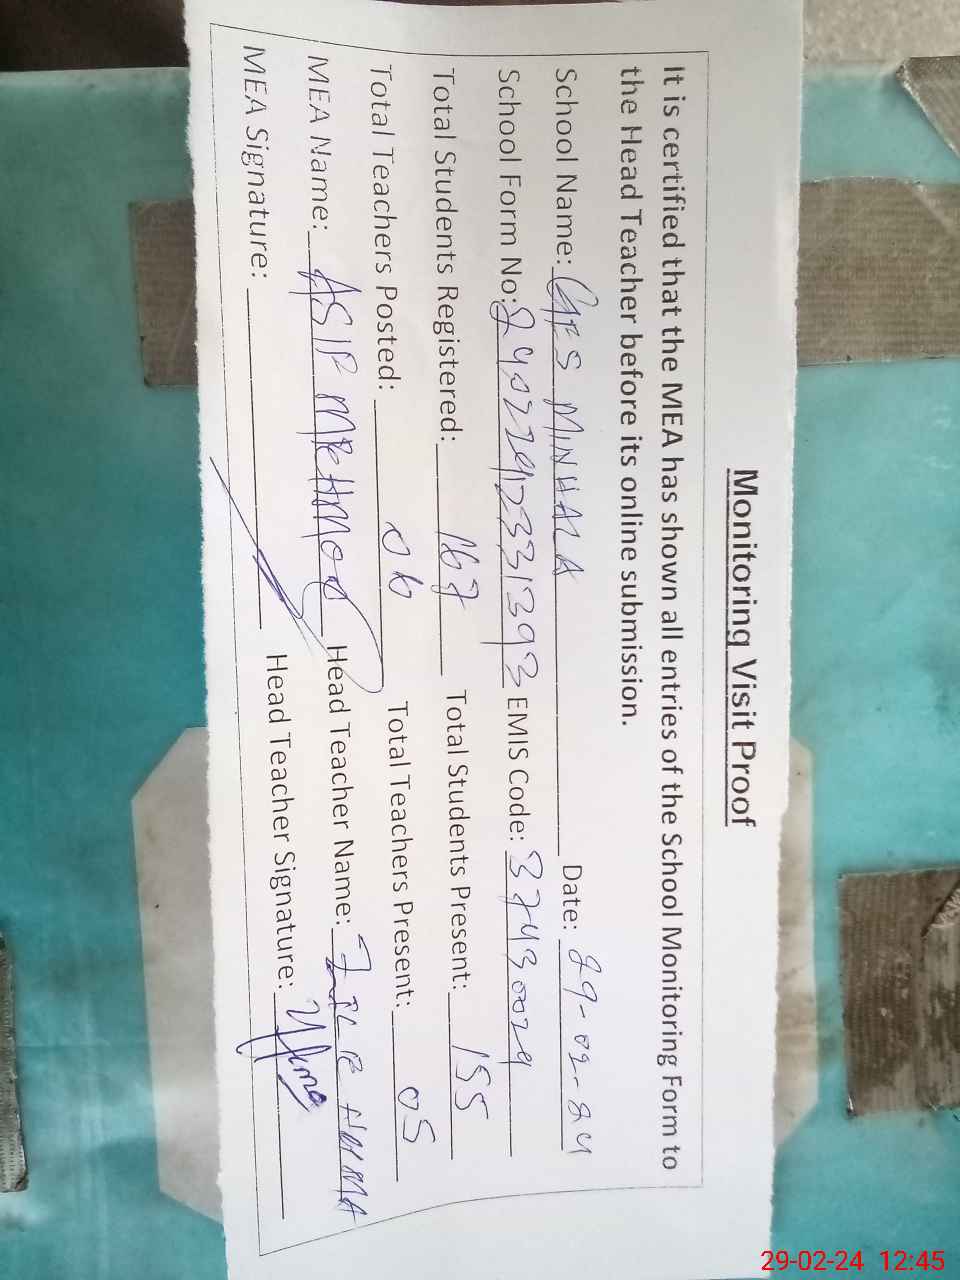 Monitoring Visit Proof
It is certified that the MEA has shown all entries of the School Monitoring Form to
the Head Teacher before its online submission.
School Name: GES MINHALA Date: 29-02-24
School Form No: EMIS Code: 37430029
Total Students Registered: 167 Total Students Present: 155
Total Teachers Posted: 06 Total Teachers Present: 05
MEA Name: ASIF MEHMOOD Head Teacher Name: HUMA
MEA Signature: Head Teacher Signature:
29-02-24 12:45